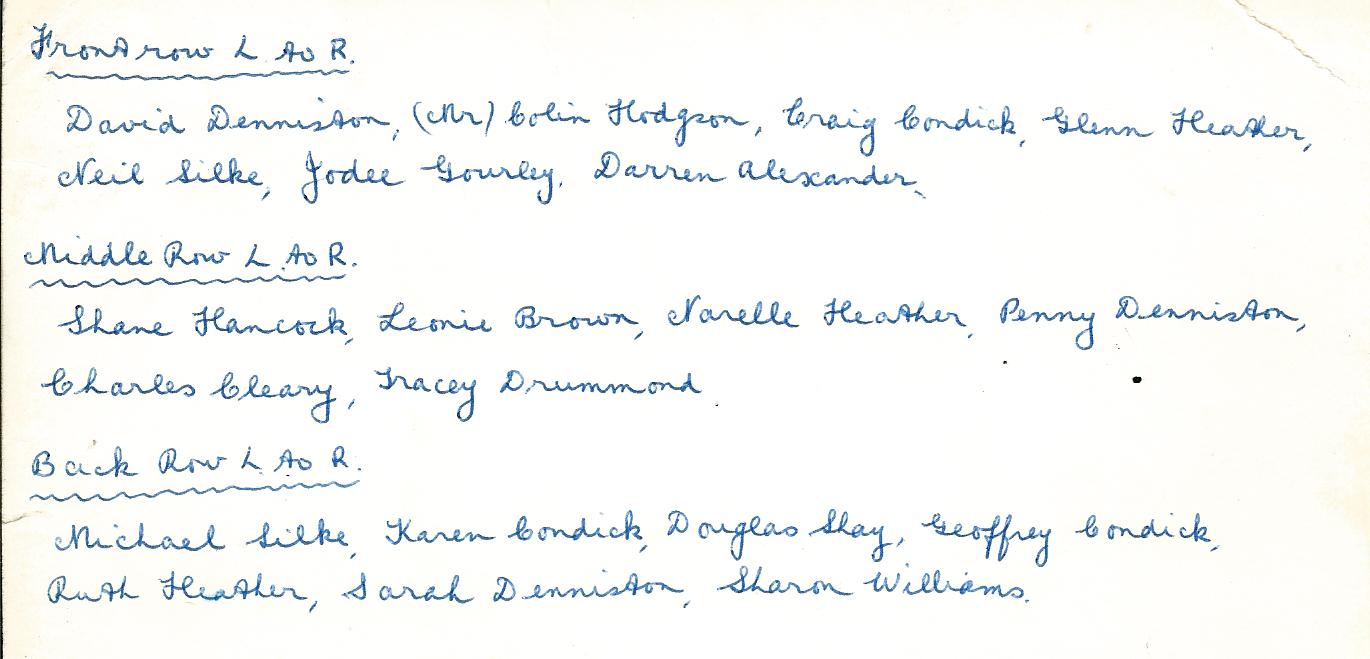 Front row L to R.
David Denniston, (Mr) Colin Hodgson, Craig Condick, Glenn Heather,
Neil Silke, Jodee Gourley, Darren Alexander,
Middle Row L to R.
Shane Hancock, Leonie Brown, Narelle Heather, Penny Denniston,
Charles Cleary, Tracey Drummond
Back Row L to R.
Michael Silke, Karen Condick, Douglas Shay, Geoffrey Condick,
Ruth Heather, Sarah Denniston, Sharon Williams.